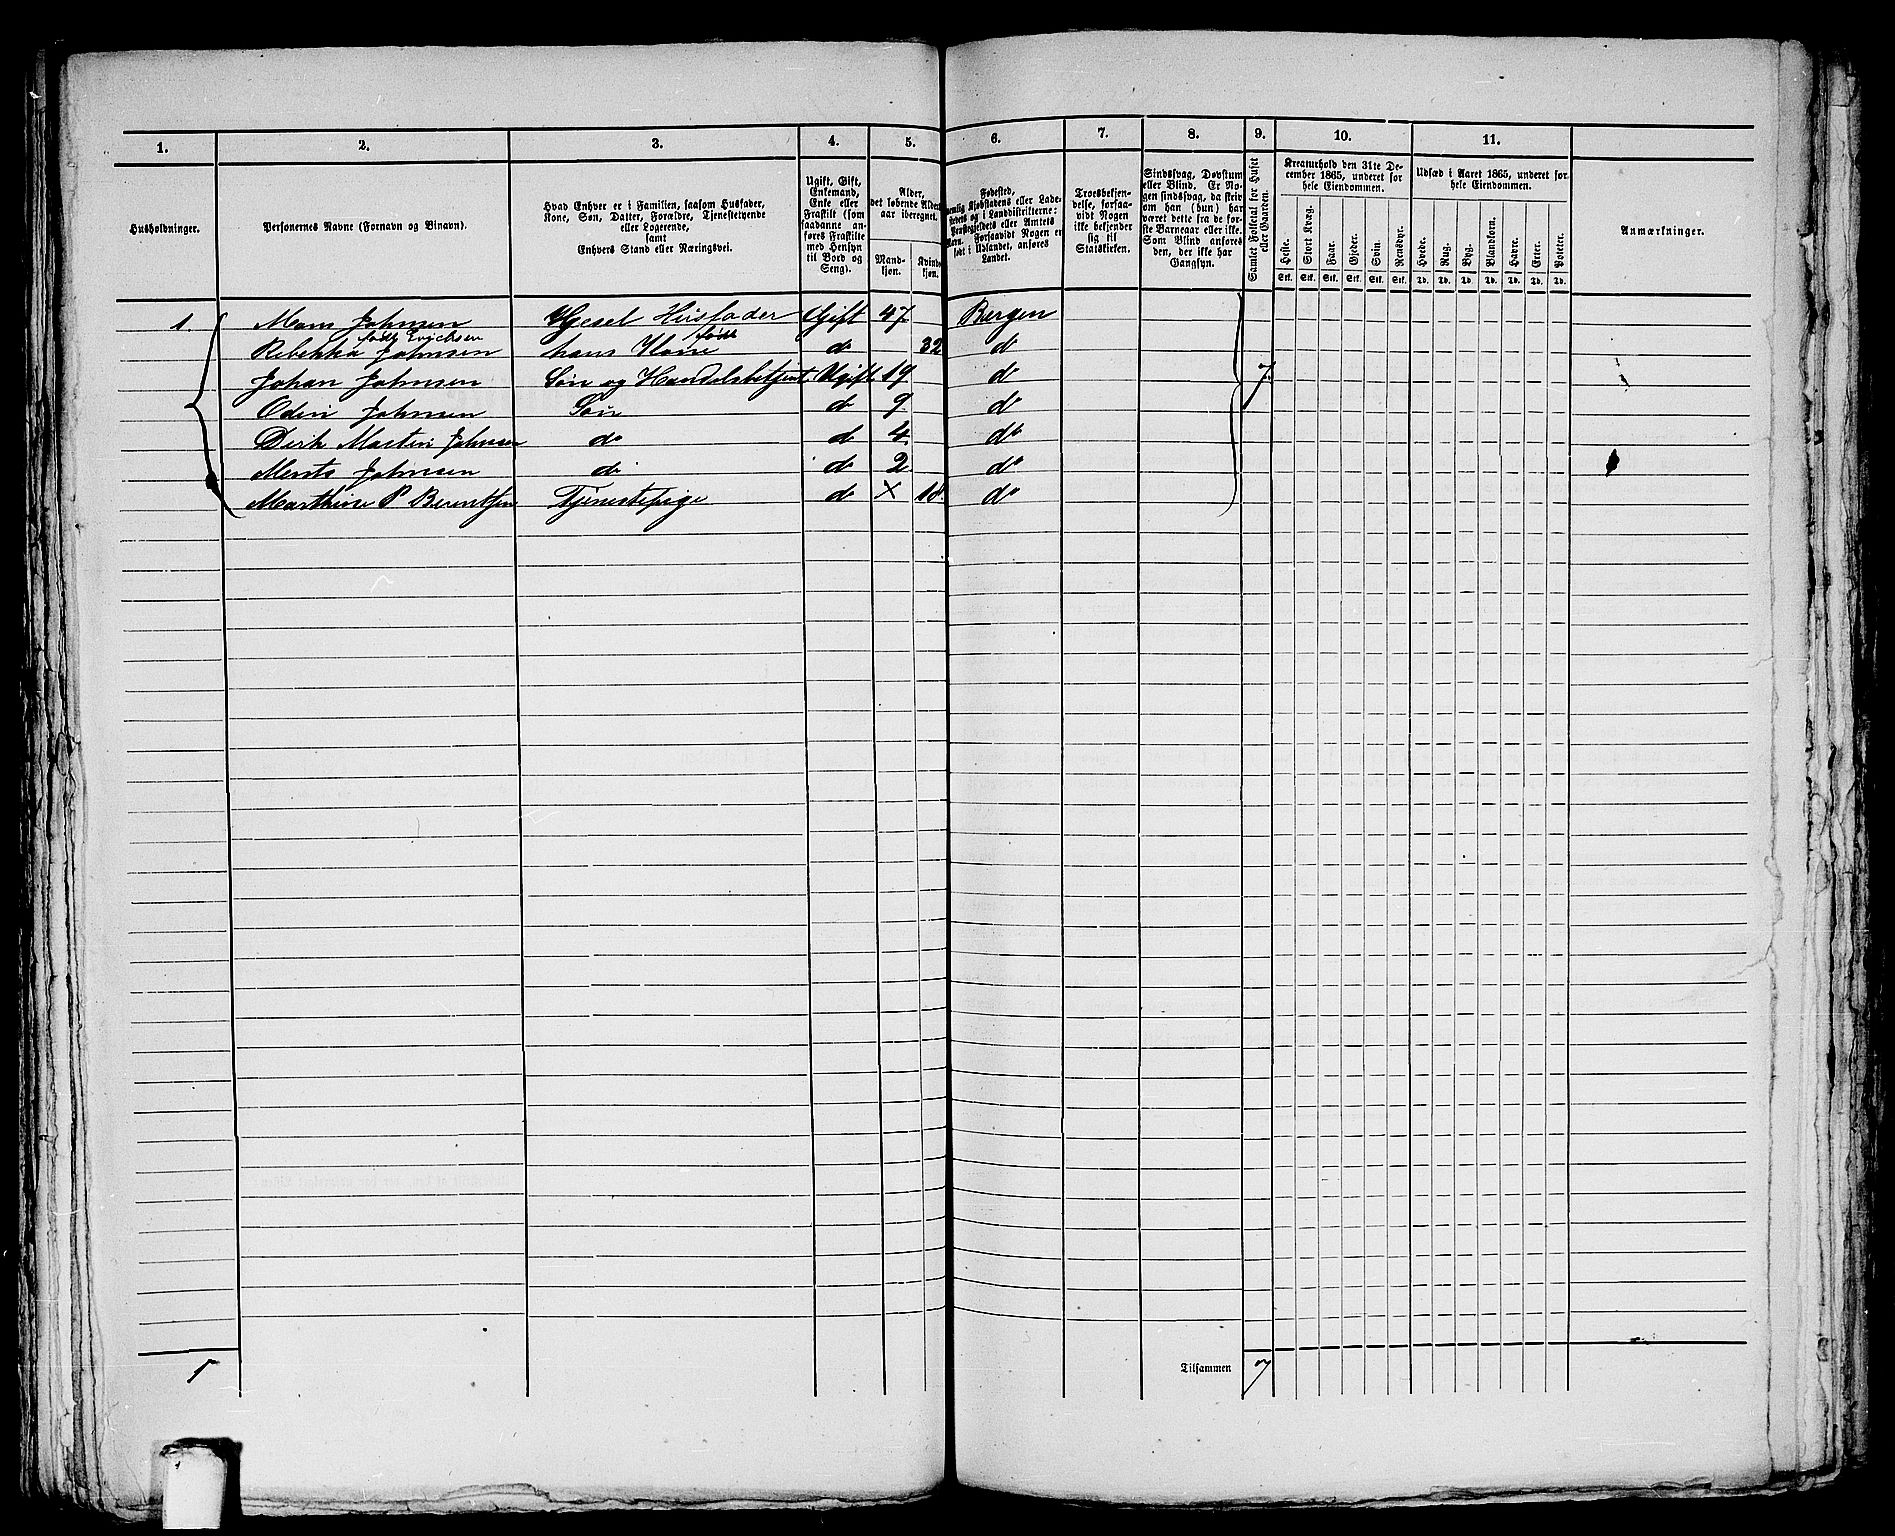 1. 2. 3. 4. 5. 6. 7. 8. 9. 10. 11.
Husholdninger.
Personernes Navne (Fornavn og Binavn).
Hvad Enhver er i Familien, saasom Husfader,
Kone, Søn, Datter, Forældre, Tjenestetyende
eller Logerende,
samt
Enhvers Stand eller Næringsvei.
Ugift, Gift,
Enkemand,
Enke eller
Fraskilt (som
saadanne an-
føres Fraskilte
med Hensyn
til Bord og
Seng).
Alder,
det løbende Alders-
aar iberegnet.
Mand-
kjøn.
Kvinde-
kjøn.
Fødested,
nemlig Kjøbstadens eller Lade-
stedets og i Landdistrikterne:
Præstegjeldets eller Amtets
Navn. Forsaavidt Nogen er
født i Udlandet, anføres
Landet.
Troesbekjen-
delse, forsaa-
vidt Nogen
ikke bekjender
sig til
Statskirken.
Sindssvag, Døvstum
eller Blind. Er No-
gen sindssvag, da skriv
om han (hun) har
været dette fra de før-
ste Barneaar eller ikke.
Som Blind anføres
den, der ikke har
Gangsyn.
Samlet Folketal for Huset
eller Gaarden.
Kreaturhold den 31te De-
cember 1865, underet for
hele Eiendommen.
Heste. Stort Kvæg. Faar. Gjeder. Svin. Rensdyr.
Stk. Stk. Stk. Stk. Stk. Stk.
Udsæd i Aaret 1865, underet for
hele Eiendommen.
Hvede. Rug. Byg. Blandkorn. Havre. Erter. Poteter.
Td. Td. Td. Td. Td. Td. Td.
Anmærkninger.
1 Mons Johnsen Husfader Gift 47 Bergen
født Erichsen født
Rebekka Johnsen hans Kone do 32 do
Johan Johnsen Søn og Handelsbetjent Ugift 19 do 7
Odin Johnsen Søn do 9 do
Dirk Martin Johnsen do do 4 do
Johnsen do do 2 do
Marthine P Berentsen Tjenestepige do X 18 do
1 Tilsammen 7